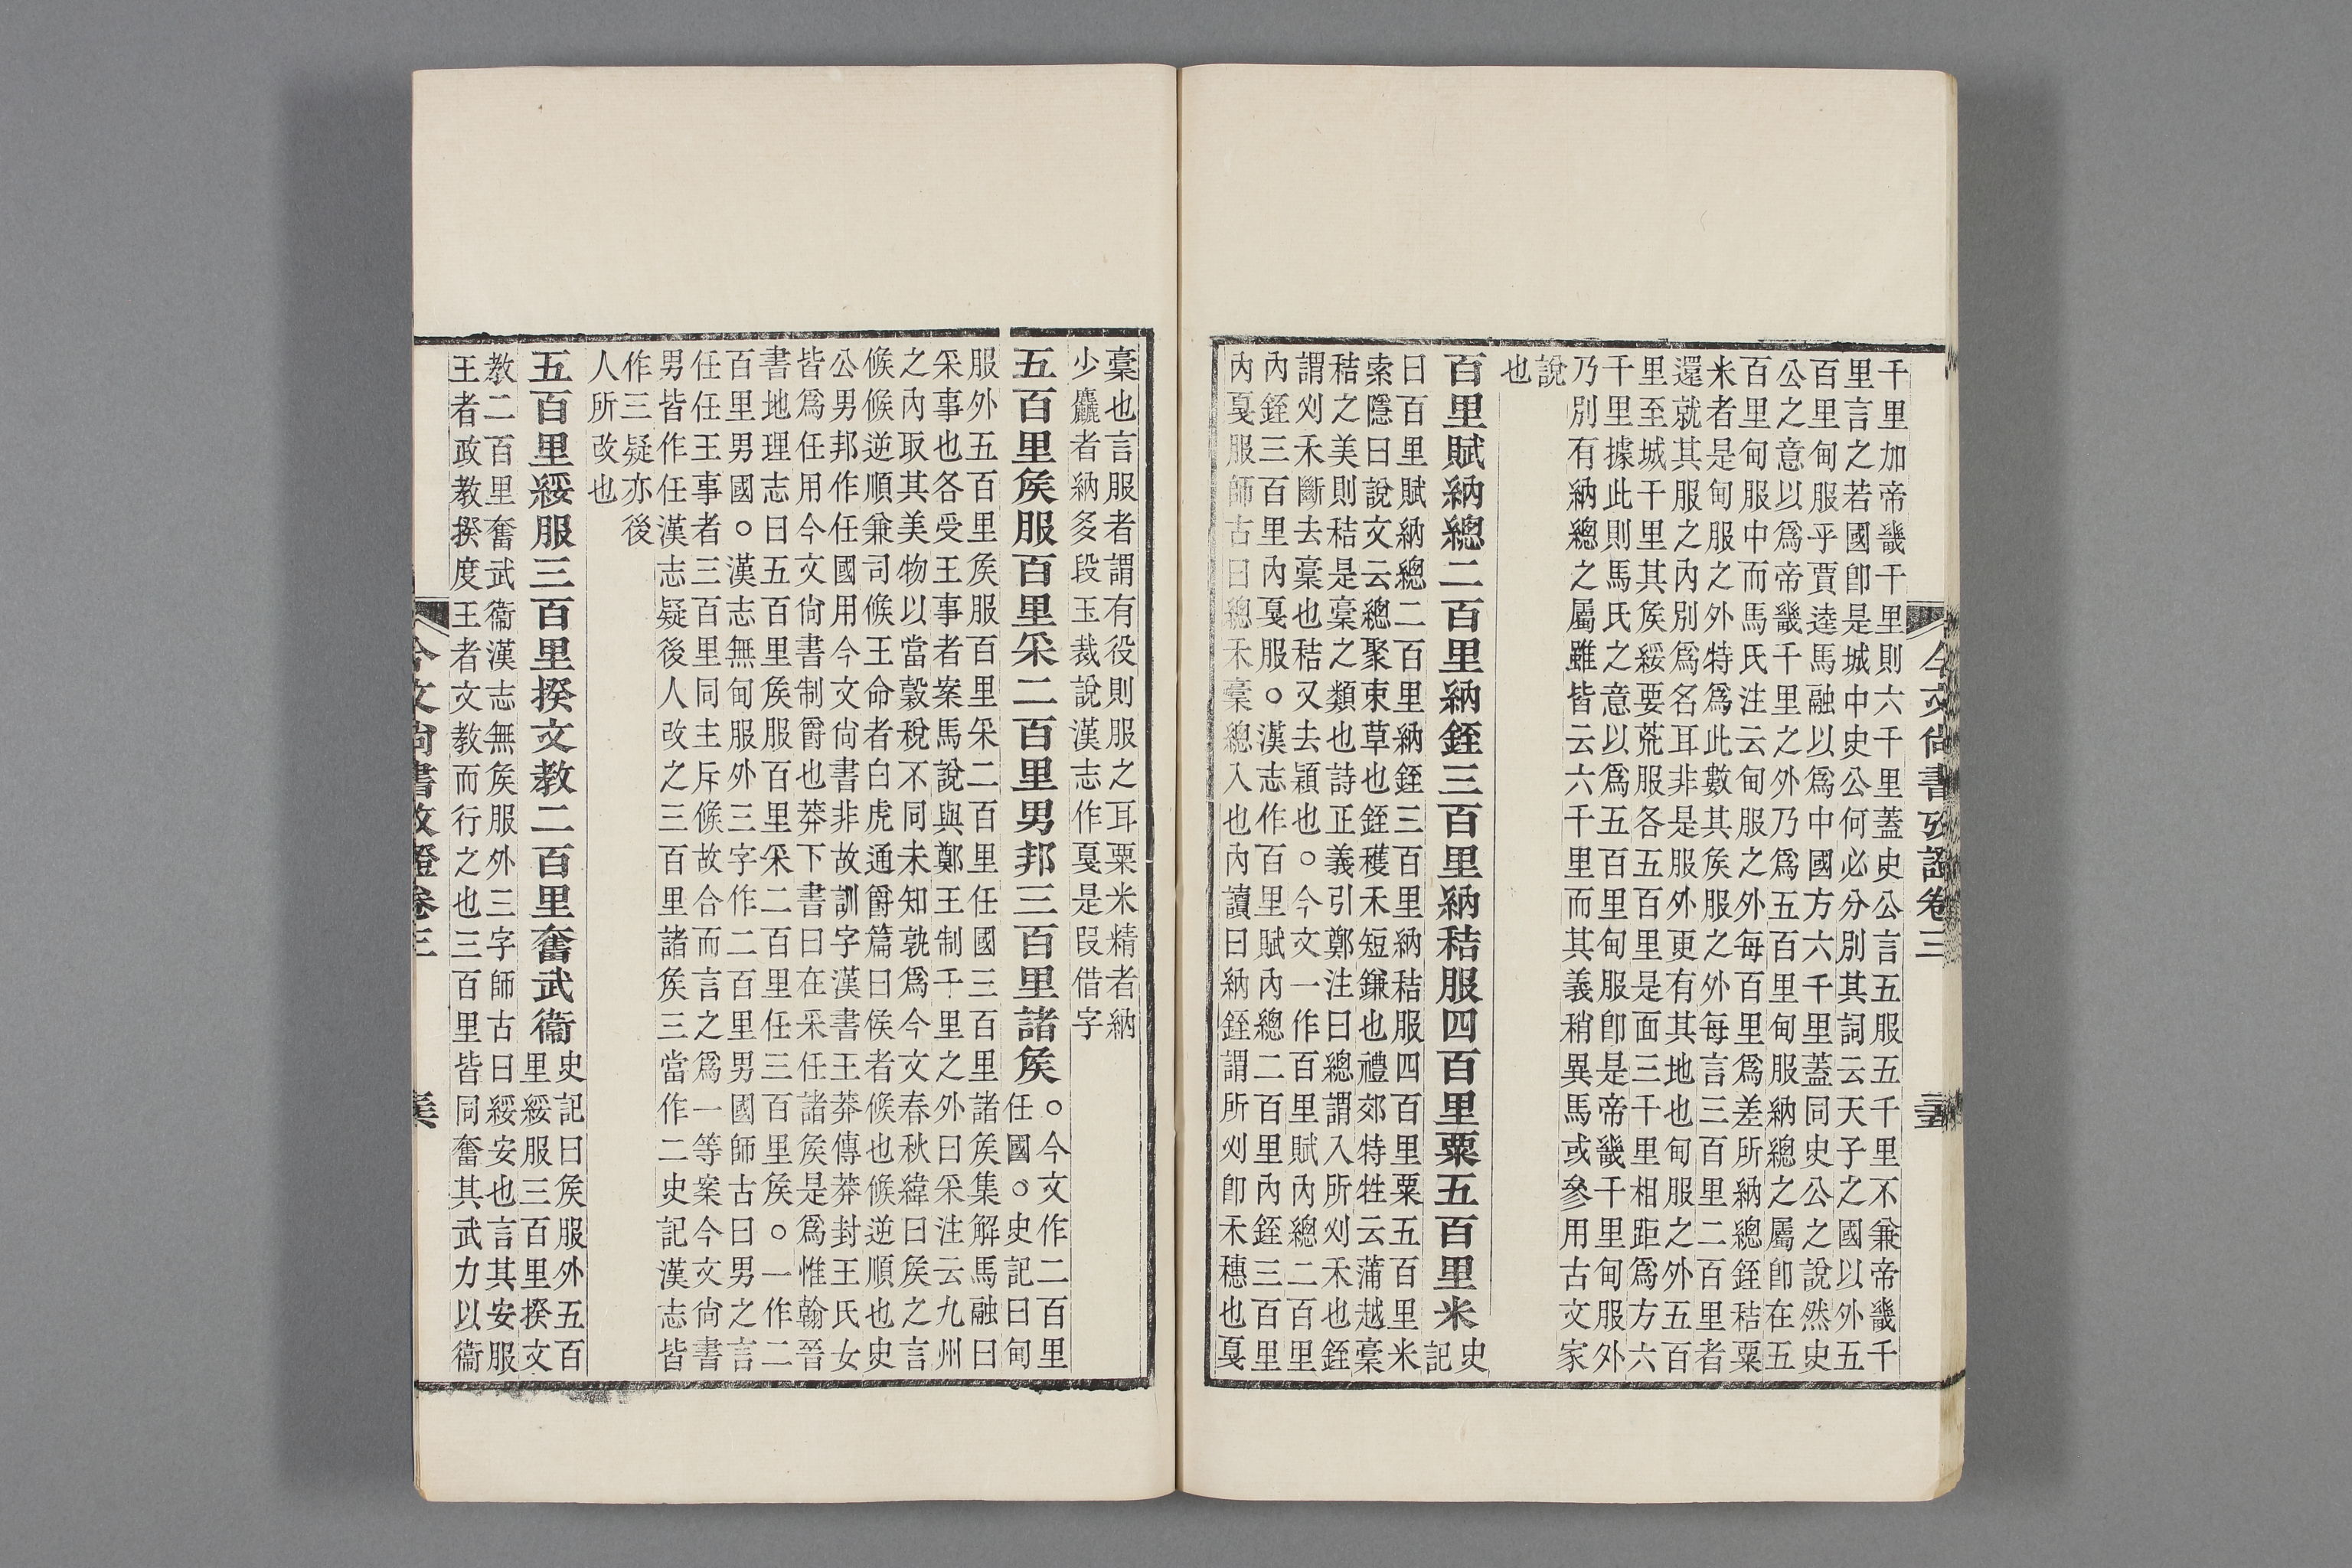 今文尚書攷證卷三
千里加帝畿千里則六千里蓋史公言五服五千里不兼帝畿千
里言之若國卽是城中史公何必分別其詞云天子之國以外五
百里甸服乎賈逵馬融以爲中國方六千里蓋同史公之說然史
公之意以爲帝畿千里之外乃爲五百里甸服納總之屬卽在五
百里甸服中而馬氏注云甸服之外每百里爲差所納總銍秸粟
米者是甸服之外特爲此數其矦服之外每言三百里二百里者
還就其服之內別爲名耳非是服外更有其地也甸服之外五百
里至城千里其矦綏要荒服各五百里是面三千里相距爲方六
千里據此則馬氏之意以爲五百里甸服卽是帝畿千里甸服外
乃別有納總之屬雖皆云六千里而其義稍異馬或參用古文家
說
也
百里賦納總二百里納銍三百里納秸服四百里粟五百里米史
記
曰百里賦納總二百里納銍三百里納秸服四百里粟五百里米
索隱曰說文云總聚束草也銍穫禾短鎌也禮郊特牲云蒲越稾
秸之美則秸是稾之類也詩正義引鄭注曰總謂入所刈禾也銍
謂刈禾斷去稾也秸又去穎也○今文一作百里賦內總二百里
內銍三百里內戛服○漢志作百里賦內總二百里內銍三百里
內戛服師古曰總禾稾總入也內讀曰納銍謂所刈卽禾穗也戛
稾也言服者謂有役則服之耳粟米精者納
少麤者納多段玉裁說漢志作戛是叚借字
五百里矦服百里采二百里男邦三百里諸矦○今文作二百里
任國○史記曰甸
服外五百里矦服百里采二百里任國三百里諸矦集解馬融曰
采事也各受王事者案馬說與鄭王制千里之外曰采注云九州
之內取其美物以當穀稅不同未知孰爲今文春秋緯曰矦之言
候候逆順兼司候王命者白虎通爵篇曰矦者候也候逆順也史
公男邦作任國用今文尚書非故訓字漢書王莽傳莽封王氏女
皆爲任用今文尚書制爵也莽下書曰在采任諸矦是爲惟翰晉
書地理志曰五百里矦服百里采二百里任三百里矦○一作二
百里男國○漢志無甸服外三字作二百里男國師古曰男之言
任任王事者三百里同主斥候故合而言之爲一等案今文尚書
男皆作任漢志疑後人改之三百里諸矦三當作二史記漢志皆
作三疑亦後
人所改也
五百里綏服三百里揆文教二百里奮武衞史記曰矦服外五百
里綏服三百里揆文
教二百里奮武衞漢志無矦服外三字師古曰綏安也言其安服
王者政教揆度王者文教而行之也三百里皆同奮其武力以衞
今文尚書攷證卷三